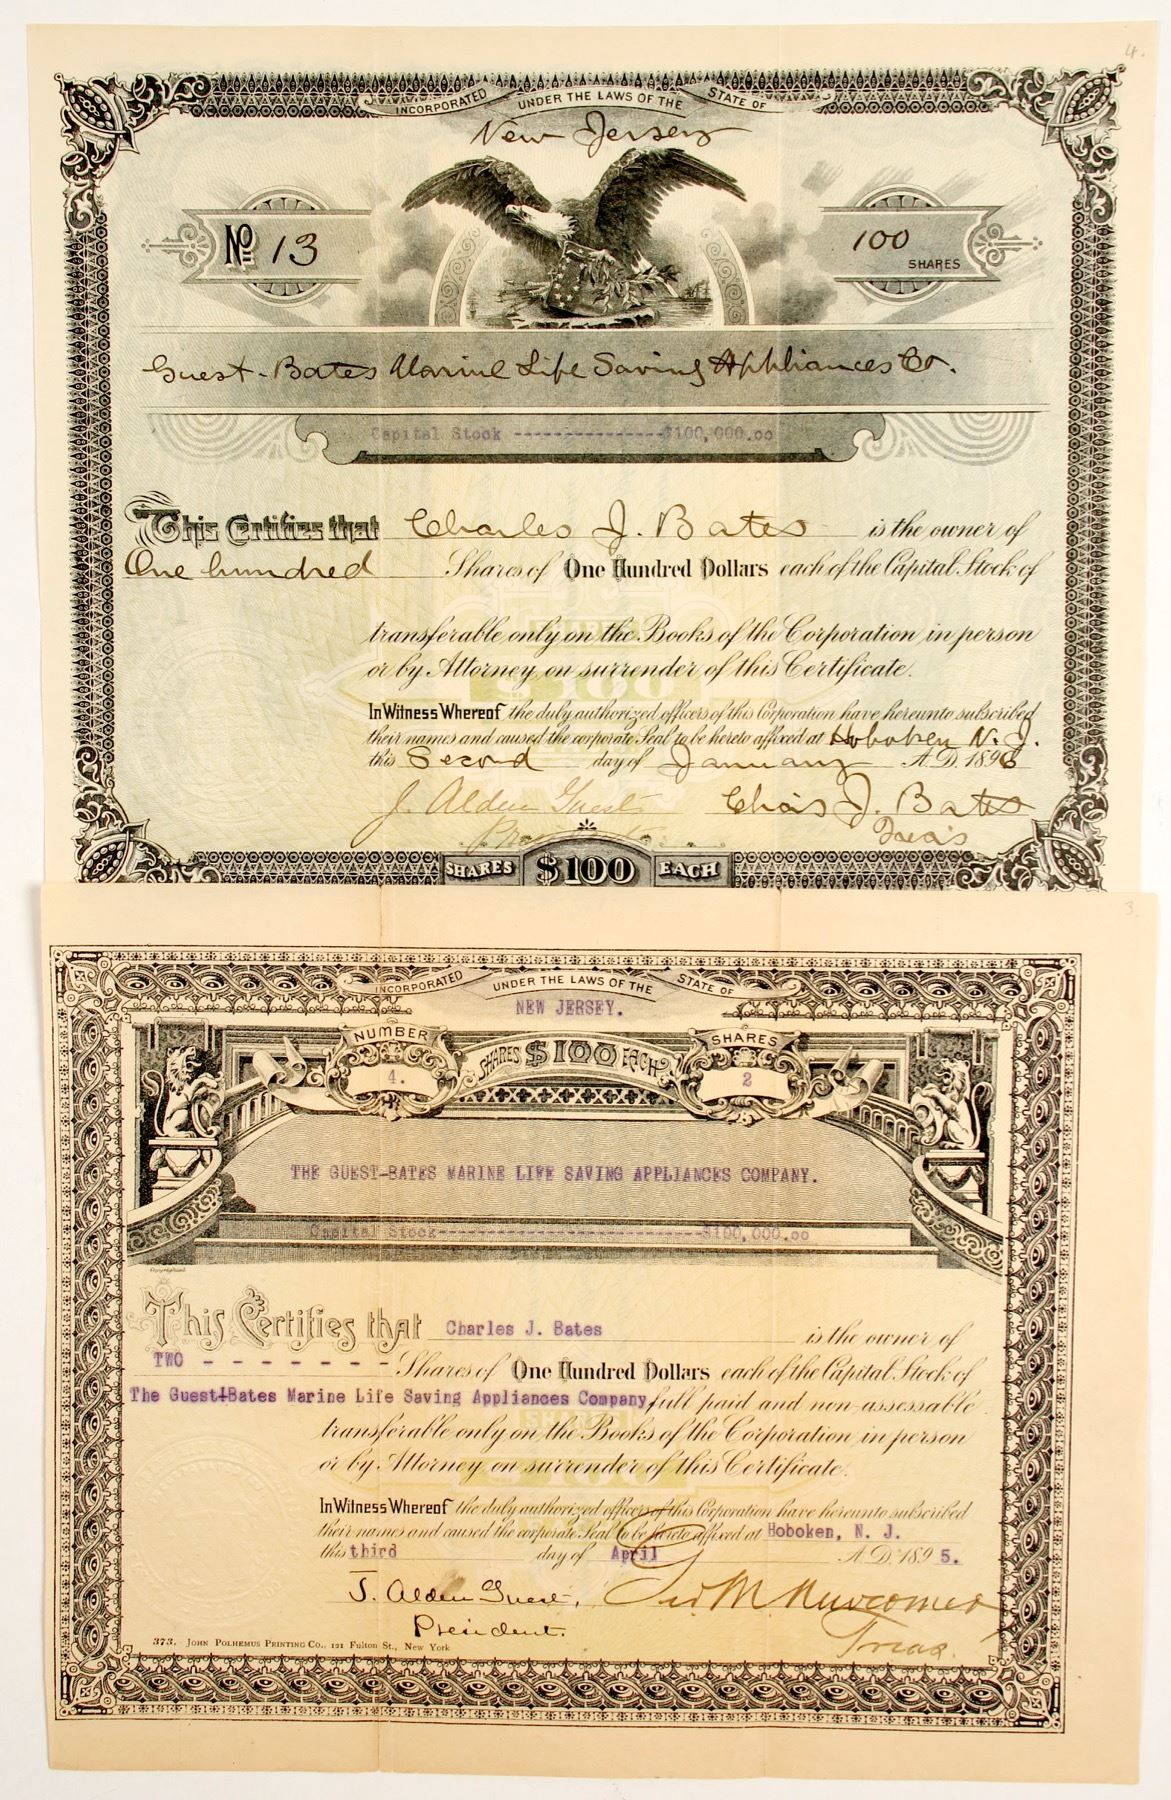 4.
INCORPORATED UNDER THE LAWS OF THE STATE OF
New Jersey
No 13
100
SHARES
Guest-Bates Marine Life Saving Appliances Co.
Capital Stock ---------------$100,000.00
This Certifies that Charles J. Bates is the owner of
One hundred Shares of One Hundred Dollars each of the Capital Stock of
transferable only on the Books of the Corporation in person
or by Attorney on surrender of this Certificate.
In Witness Whereof the duly authorized officers of this Corporation have hereunto subscribed
their names and caused the corporate Seal to be hereto affixed at Hoboken N. J.
this Second day of January A.D. 1896
J. Alden Guest Chas J. Bates
Treas
SHARES $100 EACH
3.
INCORPORATED UNDER THE LAWS OF THE STATE OF
NEW JERSEY.
NUMBER SHARES $100 EACH SHARES
4. 2
THE GUEST-BATES MARINE LIFE SAVING APPLIANCES COMPANY.
Capital Stock--------------------------$100,000.00
This Certifies that Charles J. Bates is the owner of
TWO - - - - - - - Shares of One Hundred Dollars each of the Capital Stock of
The Guest-Bates Marine Life Saving Appliances Company, full paid and non-assessable
transferable only on the Books of the Corporation in person
or by Attorney on surrender of this Certificate.
In Witness Whereof the duly authorized officers of this Corporation have hereunto subscribed
their names and caused the corporate Seal to be hereto affixed at Hoboken, N. J.
this third day of April A.D. 1895.
J. Alden Guest, Geo M Newcomer
President. Treas.
373. JOHN POLHEMUS PRINTING CO., 121 Fulton St., New York